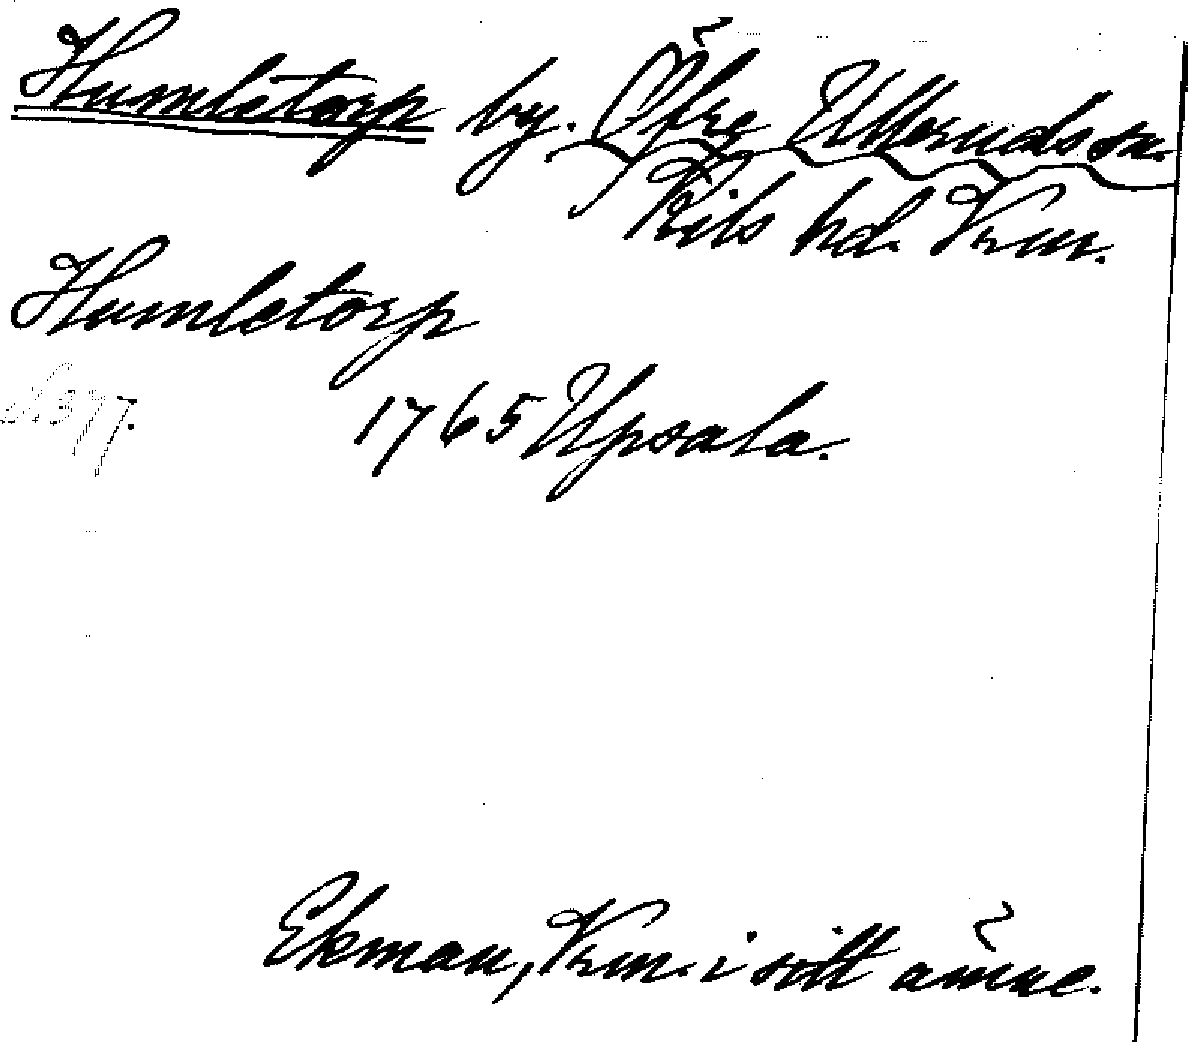 Humletorp by. Öfre Ulleruds sn.
Kils hd. Vrm.
Humletorp
N:377. 1765 Upsala.
Ekman, Vrm. i sitt ämne.